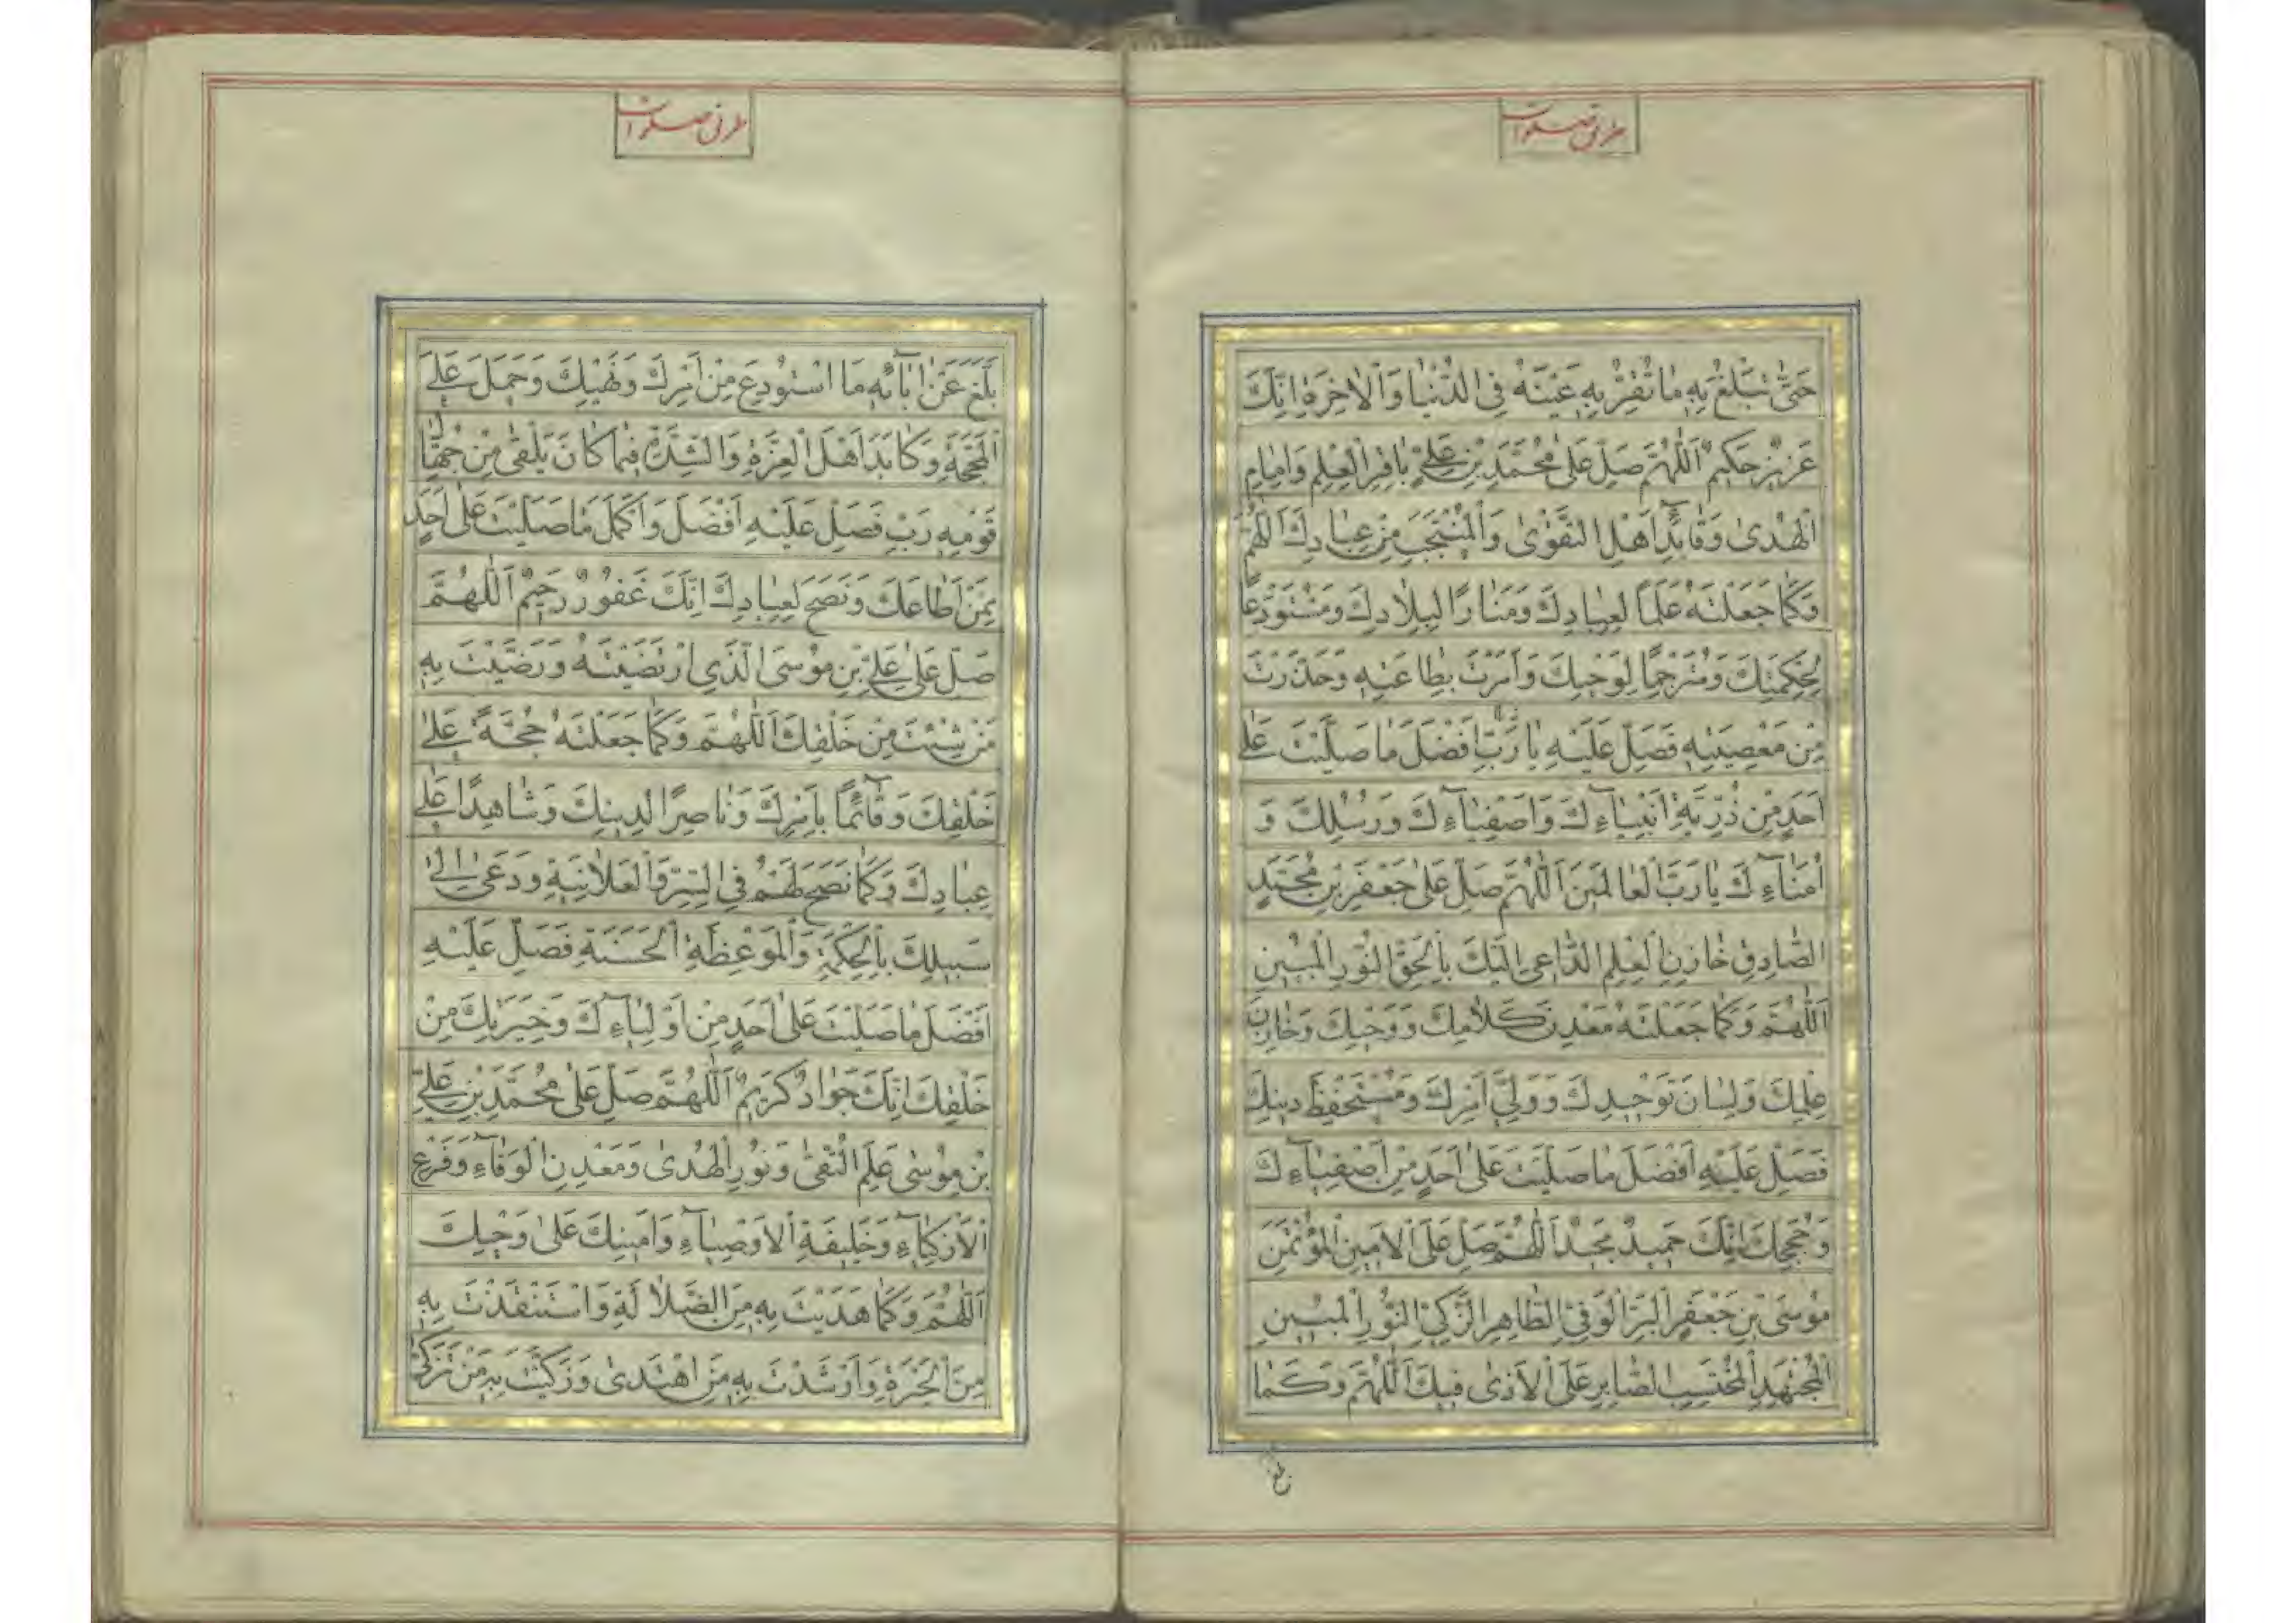 طرق صلوات
حَتّىٰ تُبَلِّغَ بِهِ مٰا تُقِرُّ بِهِ عَيْنَهُ فِى الدُّنْيٰا وَالْاٰخِرَةِ اِنَّكَ
عَزِيزٌ حَكِيمٌ اَللّٰهُمَّ صَلِّ عَلىٰ مُحَمَّدِ بْنِ عَلِيٍّ بٰاقِرِ الْعِلْمِ وَاِمٰامِ
الْهُدىٰ وَقٰائِدِ اَهْلِ التَّقْوٰى وَالْمُنْتَجَبِ مِنْ عِبٰادِكَ اَللّٰهُمَّ
وَكَمٰا جَعَلْتَهُ عَلَمًا لِعِبٰادِكَ وَمَنٰارًا لِبِلٰادِكَ وَمُسْتَوْدَعًا
لِحِكْمَتِكَ وَمُتَرْجِمًا لِوَحْيِكَ وَاَمَرْتَ بِطٰاعَتِهِ وَحَذَّرْتَ
مِنْ مَعْصِيَتِهِ فَصَلِّ عَلَيْهِ يٰا رَبِّ اَفْضَلَ مٰا صَلَّيْتَ عَلىٰ
اَحَدٍ مِنْ ذُرِّيَّةِ اَنْبِيٰآءِكَ وَاَصْفِيٰآءِكَ وَرُسُلِكَ وَ
اُمَنٰآءِكَ يٰا رَبَّ الْعٰالَمِينَ اَللّٰهُمَّ صَلِّ عَلىٰ جَعْفَرِ بْنِ مُحَمَّدٍ
الصّٰادِقِ خٰازِنِ الْعِلْمِ الدّٰاعِى اِلَيْكَ بِالْحَقِّ النُّورِ الْمُبِينِ
اَللّٰهُمَّ وَكَمٰا جَعَلْتَهُ مَعْدِنَ كَلٰامِكَ وَوَحْيِكَ وَخٰازِنَ
عِلْمِكَ وَلِسٰانَ تَوْحِيدِكَ وَوَلِيَّ اَمْرِكَ وَمُسْتَحْفَظَ دِينِكَ
فَصَلِّ عَلَيْهِ اَفْضَلَ مٰا صَلَّيْتَ عَلىٰ اَحَدٍ مِنْ اَصْفِيٰآءِكَ
وَحُجَجِكَ اِنَّكَ حَمِيدٌ مَجِيدٌ اَللّٰهُمَّ صَلِّ عَلَى الْاَمِينِ الْمُؤْتَمَنِ
مُوسَى بْنِ جَعْفَرٍ الْبَرِّ الْوَفِيِّ الطّٰاهِرِ الزَّكِيِّ النُّورِ الْمُبِينِ
الْمُجْتَهِدِ الْمُحْتَسِبِ الصّٰابِرِ عَلَى الْاَذىٰ فِيكَ اَللّٰهُمَّ وَكَمٰا
بلغ
طرق صلوات
بَلَّغَ عَنْ اٰبٰآئِهِ مَا اسْتُودِعَ مِنْ اَمْرِكَ وَنَهْيِكَ وَحَمَلَ عَلَى
الْمَحَجَّةِ وَكٰابَدَ اَهْلَ الْعِزَّةِ وَالشِّدَّةِ فِيمٰا كٰانَ يَلْقىٰ مِنْ جُهّٰالِ
قَوْمِهِ رَبِّ فَصَلِّ عَلَيْهِ اَفْضَلَ وَاَكْمَلَ مٰا صَلَّيْتَ عَلىٰ اَحَدٍ
مِمَّنْ اَطٰاعَكَ وَنَصَحَ لِعِبٰادِكَ اِنَّكَ غَفُورٌ رَحِيمٌ اَللّٰهُمَّ
صَلِّ عَلىٰ عَلِيِّ بْنِ مُوسَى الَّذِى ارْتَضَيْتَهُ وَرَضَّيْتَ بِهِ
مَنْ شِئْتَ مِنْ خَلْقِكَ اَللّٰهُمَّ وَكَمٰا جَعَلْتَهُ حُجَّةً عَلىٰ
خَلْقِكَ وَقٰآئِمًا بِاَمْرِكَ وَنٰاصِرًا لِدِينِكَ وَشٰاهِدًا عَلىٰ
عِبٰادِكَ وَكَمٰا نَصَحَ لَهُمْ فِى السِّرِّ وَالْعَلٰانِيَةِ وَدَعىٰ اِلىٰ
سَبِيلِكَ بِالْحِكْمَةِ وَالْمَوْعِظَةِ الْحَسَنَةِ فَصَلِّ عَلَيْهِ
اَفْضَلَ مٰا صَلَّيْتَ عَلىٰ اَحَدٍ مِنْ اَوْلِيٰآءِكَ وَخِيَرَتِكَ مِنْ
خَلْقِكَ اِنَّكَ جَوٰادٌ كَرِيمٌ اَللّٰهُمَّ صَلِّ عَلىٰ مُحَمَّدِ بْنِ عَلِيِّ
بْنِ مُوسىٰ عَلَمِ التُّقىٰ وَنُورِ الْهُدىٰ وَمَعْدِنِ الْوَفٰآءِ وَفَرْعِ
الْاَزْكِيٰآءِ وَخَلِيفَةِ الْاَوْصِيٰآءِ وَاَمِينِكَ عَلىٰ وَحْيِكَ
اَللّٰهُمَّ وَكَمٰا هَدَيْتَ بِهِ مِنَ الضَّلٰالَةِ وَاسْتَنْقَذْتَ بِهِ
مِنَ الْحَيْرَةِ وَاَرْشَدْتَ بِهِ مَنِ اهْتَدىٰ وَزَكَّيْتَ بِهِ مَنْ تَزَكّىٰ